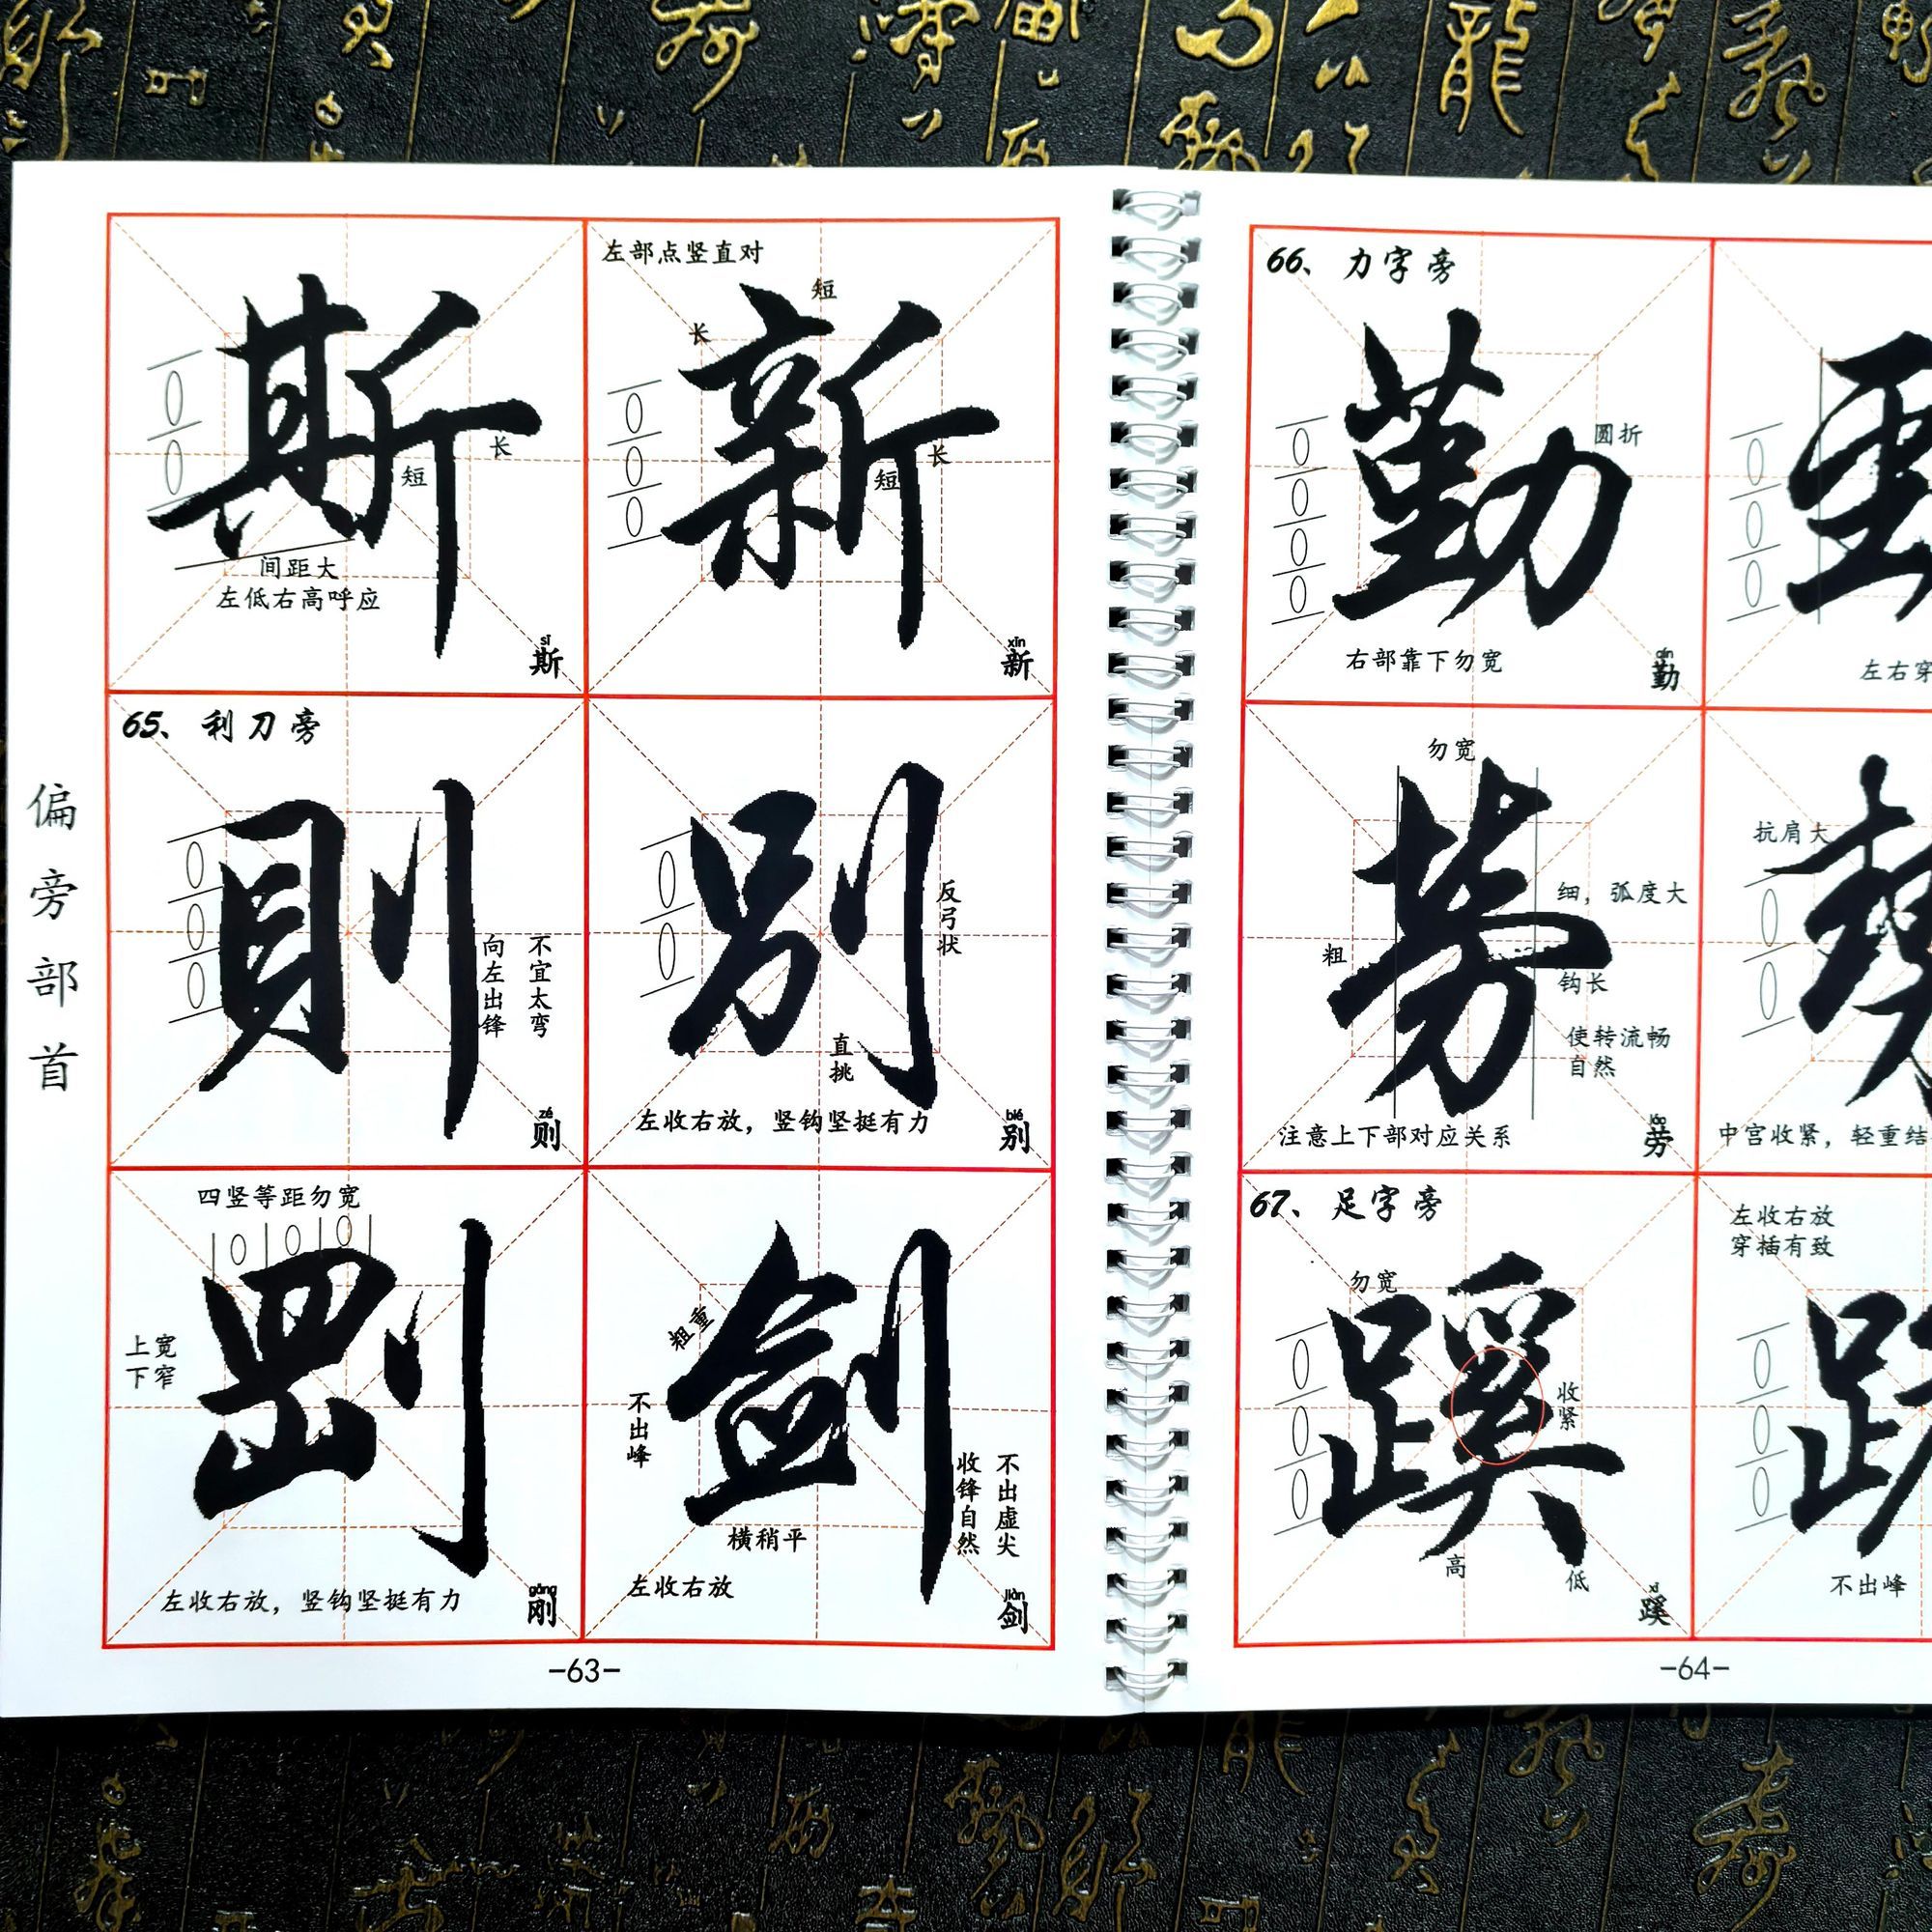 偏旁部首
斯
长
短
间距大
左低右高呼应
sī
斯
左部点竖直对
短
长
新
长
短
xīn
新
65、利刀旁
則
向左出锋
不宜太弯
zé
则
别
反弓状
直挑
左收右放，竖钩坚挺有力
bié
别
四竖等距勿宽
上宽
下窄
剛
左收右放，竖钩坚挺有力
gāng
刚
粗重
不出峰
剑
收锋自然
不出虚尖
横稍平
左收右放
jiàn
剑
-63-
66、力字旁
勤
圆折
右部靠下勿宽
qín
勤
左右穿
勿宽
劳
细，弧度大
粗
钩长
使转流畅
自然
注意上下部对应关系
láo
劳
抗肩大
中宫收紧，轻重结
67、足字旁
勿宽
蹊
收紧
高
低
xī
蹊
左收右放
穿插有致
不出峰
-64-